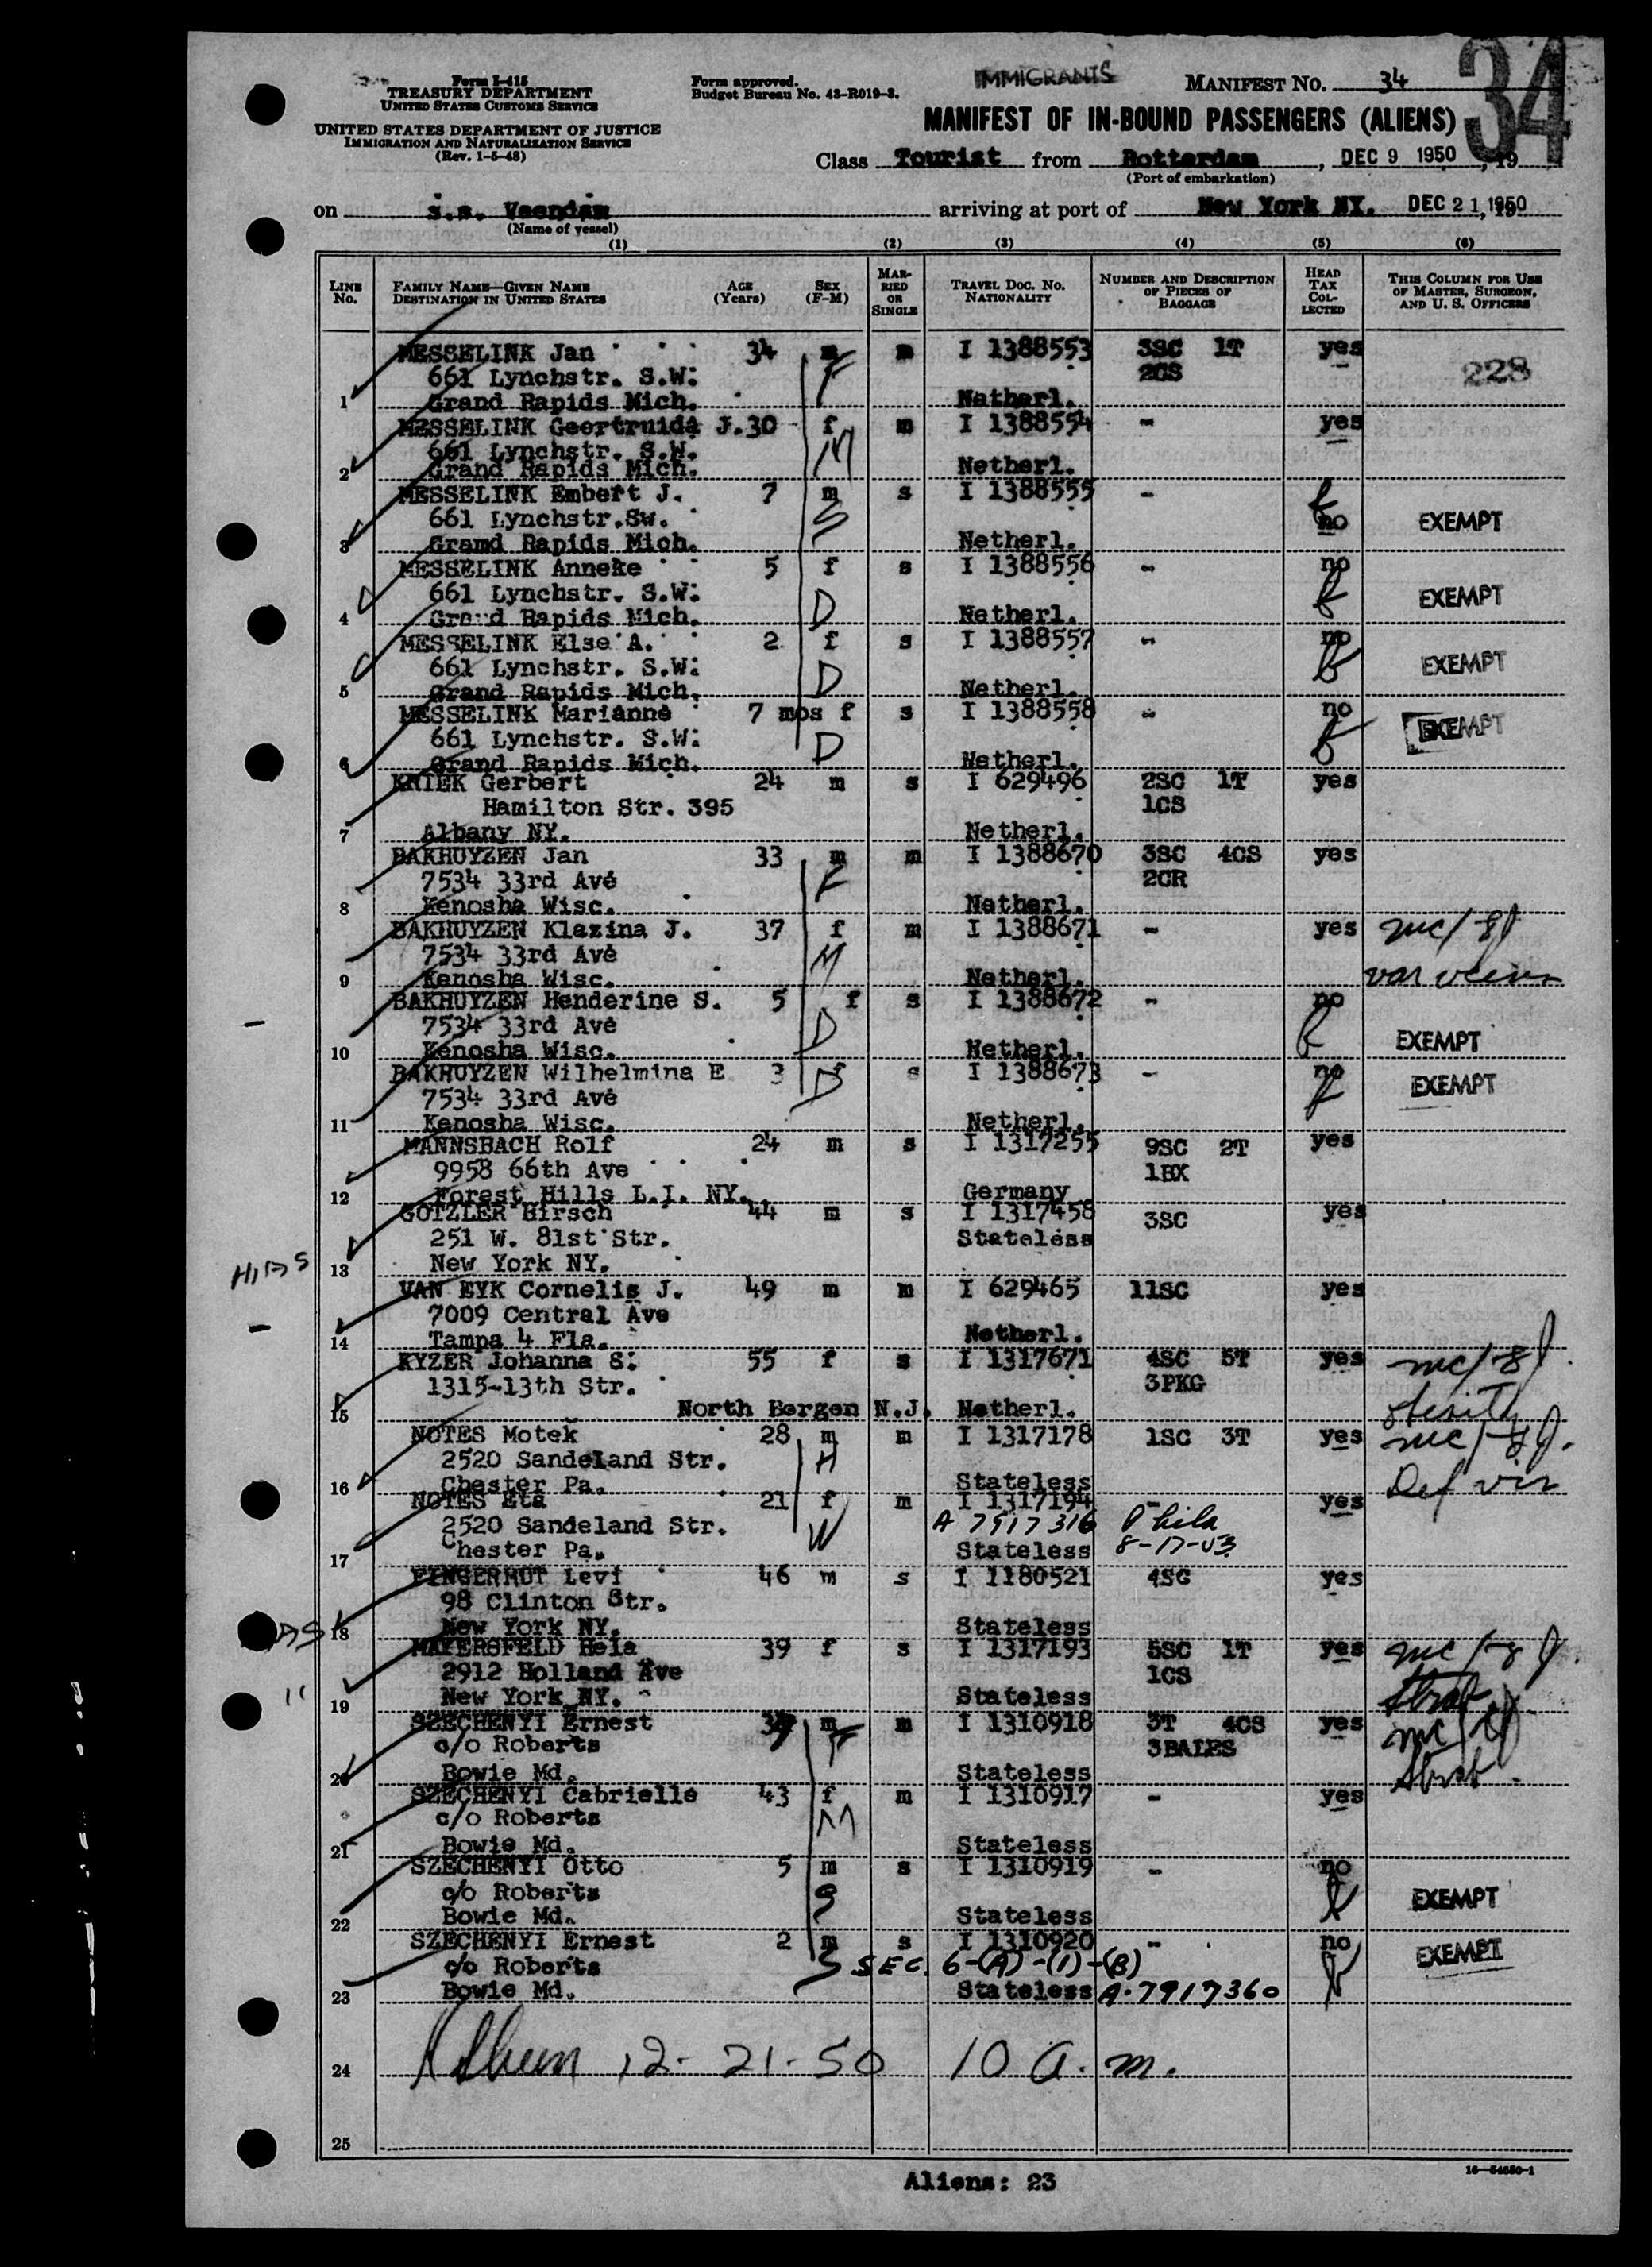 IMMIGRANTS
34
Form I-415
TREASURY DEPARTMENT
UNITED STATES CUSTOMS SERVICE
UNITED STATES DEPARTMENT OF JUSTICE
IMMIGRATION AND NATURALIZATION SERVICE
(Rev. 1-5-48)
Form approved.
Budget Bureau No. 43-R019-3.
MANIFEST NO. 34
MANIFEST OF IN-BOUND PASSENGERS (ALIENS)
Class Tourist from Rotterdam, DEC 9 1950, 19
(Port of embarkation)
on s.s. Veendam arriving at port of New York NY. DEC 21, 1950
(Name of vessel)
(1) (2) (3) (4) (5) (6)
LINE No. FAMILY NAME—GIVEN NAME DESTINATION IN UNITED STATES AGE (Years) SEX (F-M) MARRIED OR SINGLE TRAVEL DOC. NO. NATIONALITY NUMBER AND DESCRIPTION OF PIECES OF BAGGAGE HEAD TAX COLLECTED THIS COLUMN FOR USE OF MASTER, SURGEON, AND U. S. OFFICERS
MESSELINK Jan 34 m m I 1388553 3SC 1T yes
661 Lynchstr. S.W. F 2CS 228
1 Grand Rapids Mich. Netherl.
MESSELINK Geertruida J. 30 f m I 1388554 - yes
661 Lynchstr. S.W. M
2 Grand Rapids Mich. Netherl.
MESSELINK Embert J. 7 m s I 1388555 - no
661 Lynchstr.Sw. S EXEMPT
3 Gramd Rapids Mich. Netherl.
MESSELINK Anneke 5 f s I 1388556 - no
661 Lynchstr. S.W. D EXEMPT
4 Grand Rapids Mich. Netherl.
MESSELINK Else A. 2 f s I 1388557 - no
661 Lynchstr. S.W. D EXEMPT
5 Grand Rapids Mich. Netherl.
MESSELINK Marianne 7 mos f s I 1388558 - no
661 Lynchstr. S.W. D EXEMPT
6 Grand Rapids Mich. Netherl.
KRIEK Gerbert 24 m s I 629496 2SC 1T yes
Hamilton Str. 395 1CS
7 Albany NY. Netherl.
BAKHUYZEN Jan 33 m m I 1388670 3SC 4CS yes
7534 33rd Ave F 2CR
8 Kenosha Wisc. Netherl.
BAKHUYZEN Klazina J. 37 f m I 1388671 - yes
7534 33rd Ave M
9 Kenosha Wisc. Netherl. var veins
BAKHUYZEN Henderine S. 5 f s I 1388672 - no
7534 33rd Ave D EXEMPT
10 Kenosha Wisc. Netherl.
BAKHUYZEN Wilhelmina E 3 f s I 1388673 - no
7534 33rd Ave D EXEMPT
11 Kenosha Wisc. Netherl.
MANNSBACH Rolf 24 m s I 1317255 9SC 2T yes
9958 66th Ave 1BX
12 Forest Hills L.I. NY. Germany
GOTZLER Hirsch 44 m s I 1317458 3SC yes
251 W. 81st Str. Stateless
HIAS 13 New York NY.
VAN EYK Cornelis J. 49 m m I 629465 11SC yes
7009 Central Ave
14 Tampa 4 Fla. Netherl.
KYZER Johanna S. 55 f s I 1317671 4SC 5T yes
1315-13th Str. 3PKG
15 North Bergen N.J. Netherl. obesity
NOTES Motek 28 m m I 1317178 1SC 3T yes
2520 Sandeland Str. H
16 Chester Pa. Stateless Def vis
NOTES Eta 21 f m I 1317194 - yes
2520 Sandeland Str. W A 7917316 Phila
17 Chester Pa. Stateless 8-17-53
FINGERHUT Levi 46 m s I 1180521 4SC yes
98 Clinton Str.
18 New York NY. Stateless
MAYERSFELD Hela 39 f s I 1317193 5SC 1T yes
2912 Holland Ave 1CS
" 19 New York NY. Stateless
SZECHENYI Ernest m m I 1310918 3T 4CS yes
c/o Roberts F 3BALES
20 Bowie Md. Stateless
SZECHENYI Cabrielle 43 f m I 1310917 - yes
c/o Roberts M
21 Bowie Md. Stateless
SZECHENYI Otto 5 m s I 1310919 - no
c/o Roberts S EXEMPT
22 Bowie Md. Stateless
SZECHENYI Ernest 2 m s I 1310920 - no
c/o Roberts S SEC. 6-(A)-(1)-(B) EXEMPT
23 Bowie Md. Stateless A-7917360
24 12-21-50 10 a.m.
25
Aliens: 23
16—54650-1